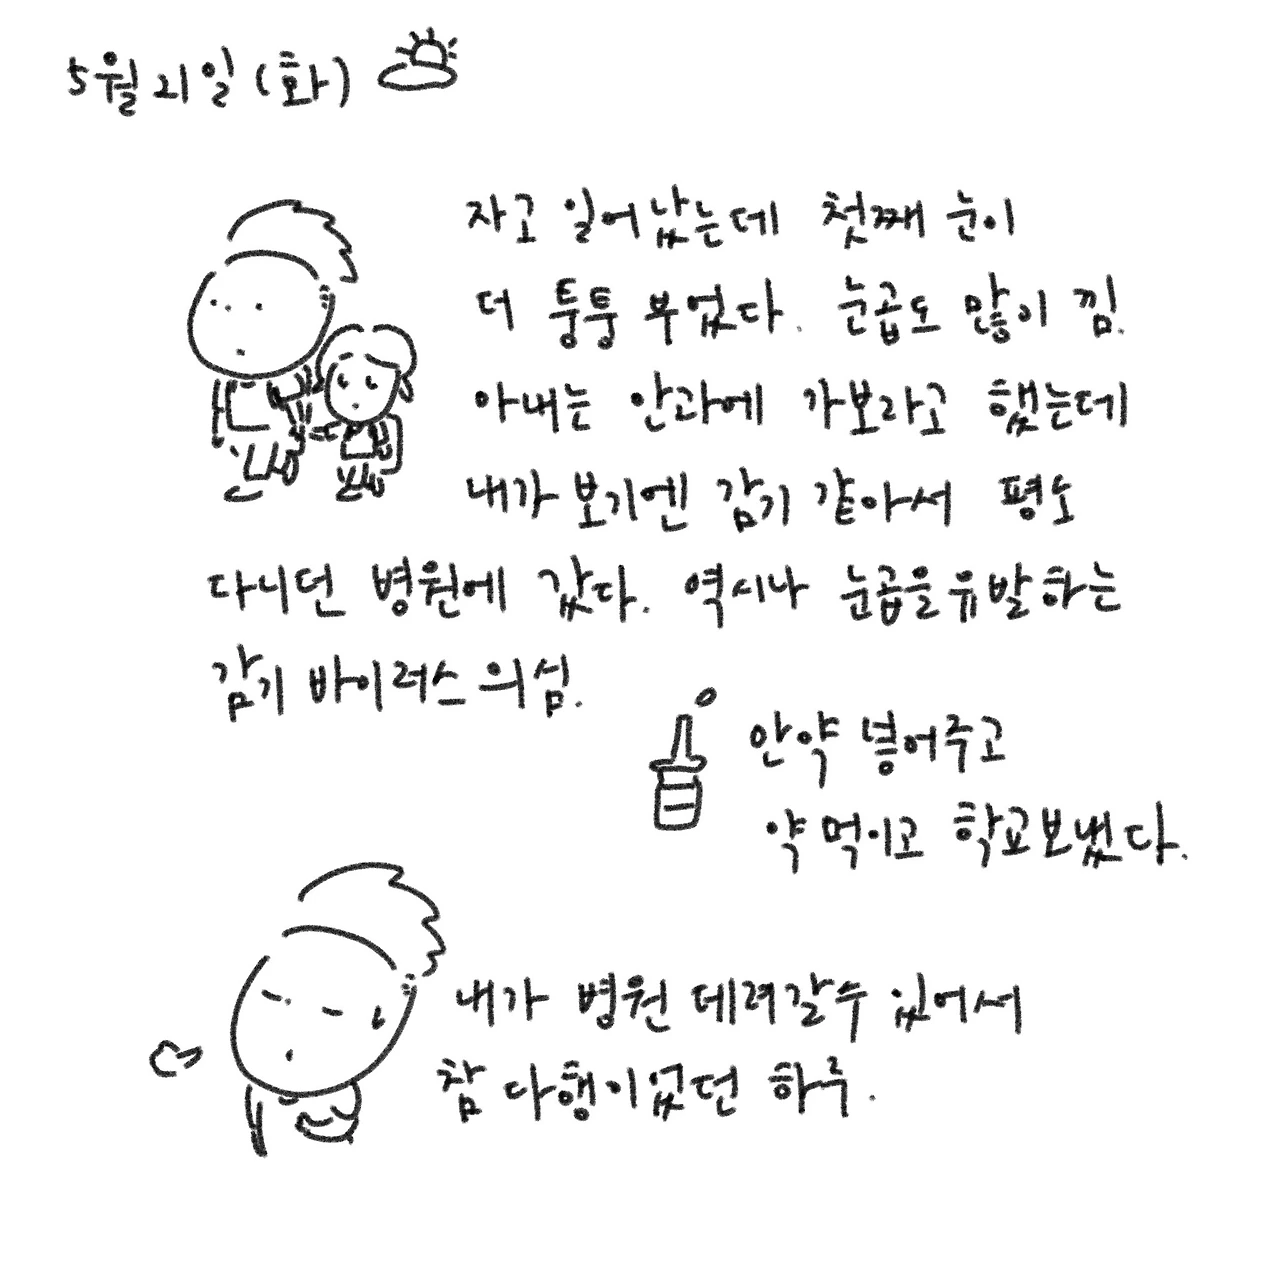 5월 21일 (화)
자고 일어났는데 첫째 눈이
더 퉁퉁 부었다. 눈곱도 많이 낌.
아내는 안과에 가보라고 했는데
내가 보기엔 감기 같아서 평소
다니던 병원에 갔다. 역시나 눈곱을 유발하는
감기 바이러스 의심.
안약 넣어주고
약 먹이고 학교 보냈다.
내가 병원 데려갈 수 있어서
참 다행이었던 하루.